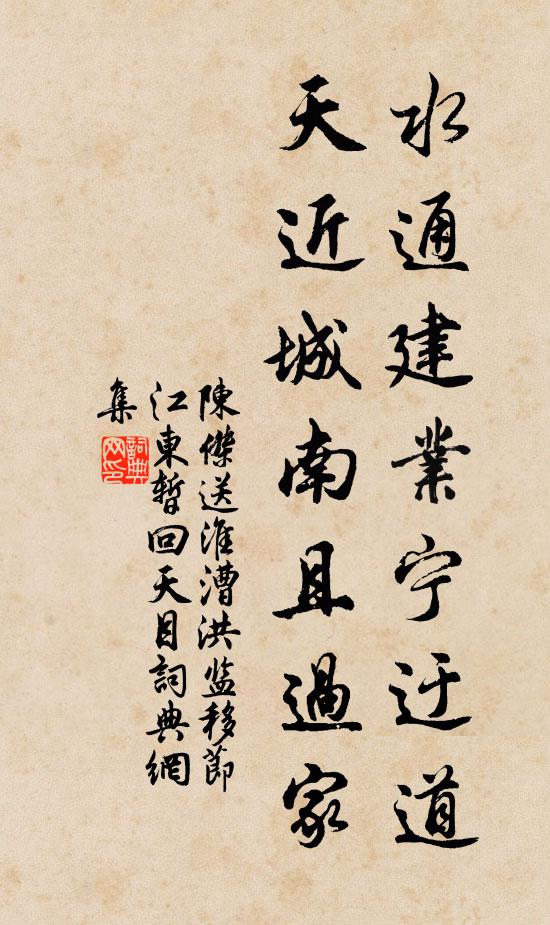 水通建業宁迂道
天近城南且過家
陳傑送淮漕洪監移節
江東暫回天目詞典網
集
詞典
网印